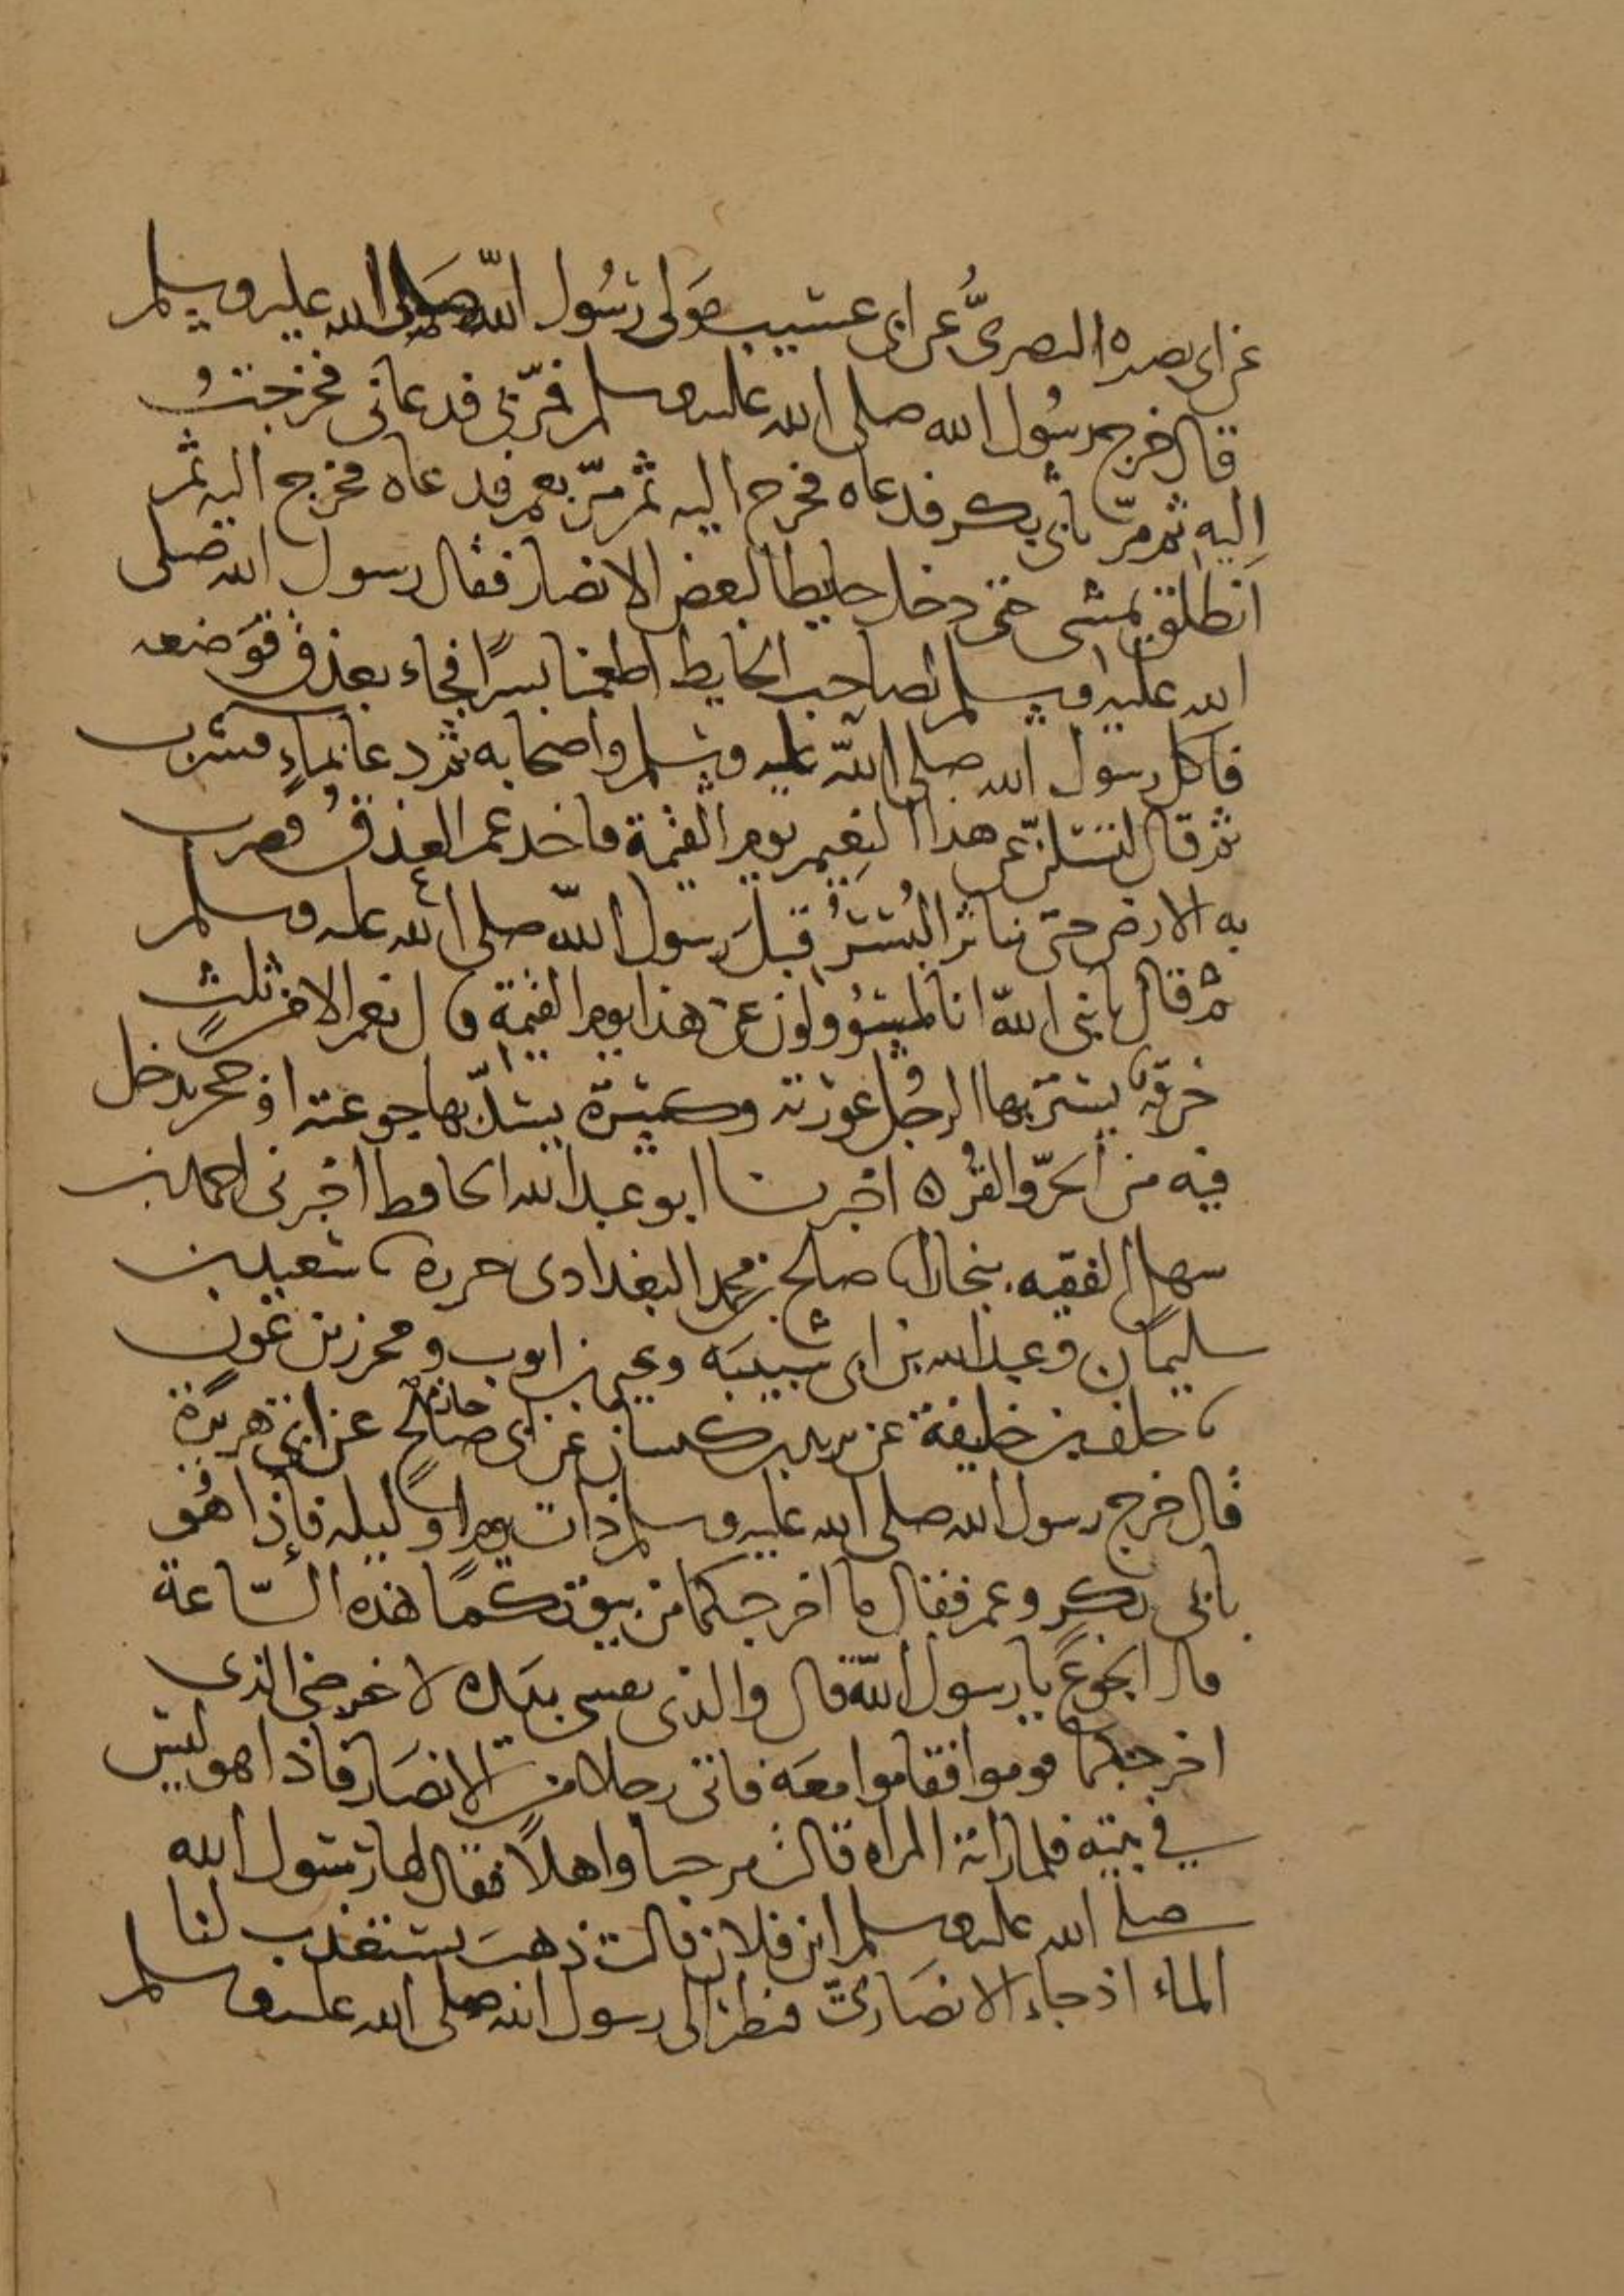 عن ابى نصره البصرىُّ عن ابى عسيب مَولى رسُول اللّه صلى الله عليه وسلم
قال خرج رسُول الله صلى الله عليه وسلم فمرّ بى فدعانى فخرجتُ
اليه ثم مرّ بأبى بكر فدعاه فخرج اليه ثم مرّ بعمر فدعاه فخرج اليه ثم
انطلق يمشى حتى دخل حايطا لبعض الانصار فقال رسول الله صلى
الله عليه وسلم لصاحب الحايط اطعمنا بسرًا فجاء بعذق فوَضعه
فاكل رسول الله صلى اللّه عليه وسلم واصحابه ثم دعا بماءٍ فشرب
ثم قال لتسئلنّ عن هذا النعيم يوم القيمة فاخذ عمر العذق فضرب
به الارض حتى تناثر البُسْرُ قبلَ رسول اللّه صلى الله عليه وسلم
ثم قال يا نبى اللّه انا لمسؤولون عن هذا يوم القيمة قال نعم الا من ثلثٍ
خرقه يستر بها الرجُل عورته وكسرة يسدّ بها جوعته او جحر يدخل
فيه من الحرّ والقرّ ه اخبرنا ابو عبد الله الحافظ اخبرنى احمد بن
سهل الفقيه ببخارا نا صالح بن محمد البغدادى جزره نا سعيد بن
سليمان وعبد الله بن ابى شيبَه ويحيى بن ايوب ومحرز بن عون
نا خلف بن خليفة عن يزيد بن كيسان عن ابى صالحٍ حازم عن ابى هريرة
قال خرج رسول الله صلى الله عليه وسلم ذات يوم او ليله فإذا هُو
بأبى بكر وعمر فقال ما اخرجكما من بيوتكمَا هذه السّاعة
قال الجوعُ يا رسول اللّه قال والذى نفسى بيَده لاخرجنى الذى
اخرجكما قوموا فقاموا معَه فاتى رجلا من الانصَار فاذا هو ليس
فى بيته فلما راته المراه قالت مرحبا واهلاً فقال لها رسُول الله
صلى الله عليه وسلم اين فلان قالت ذهبَ يستعذب لنا
الماء اذ جاء الانصَارىّ فنظر الى رسول الله صلى الله عليه وسلم